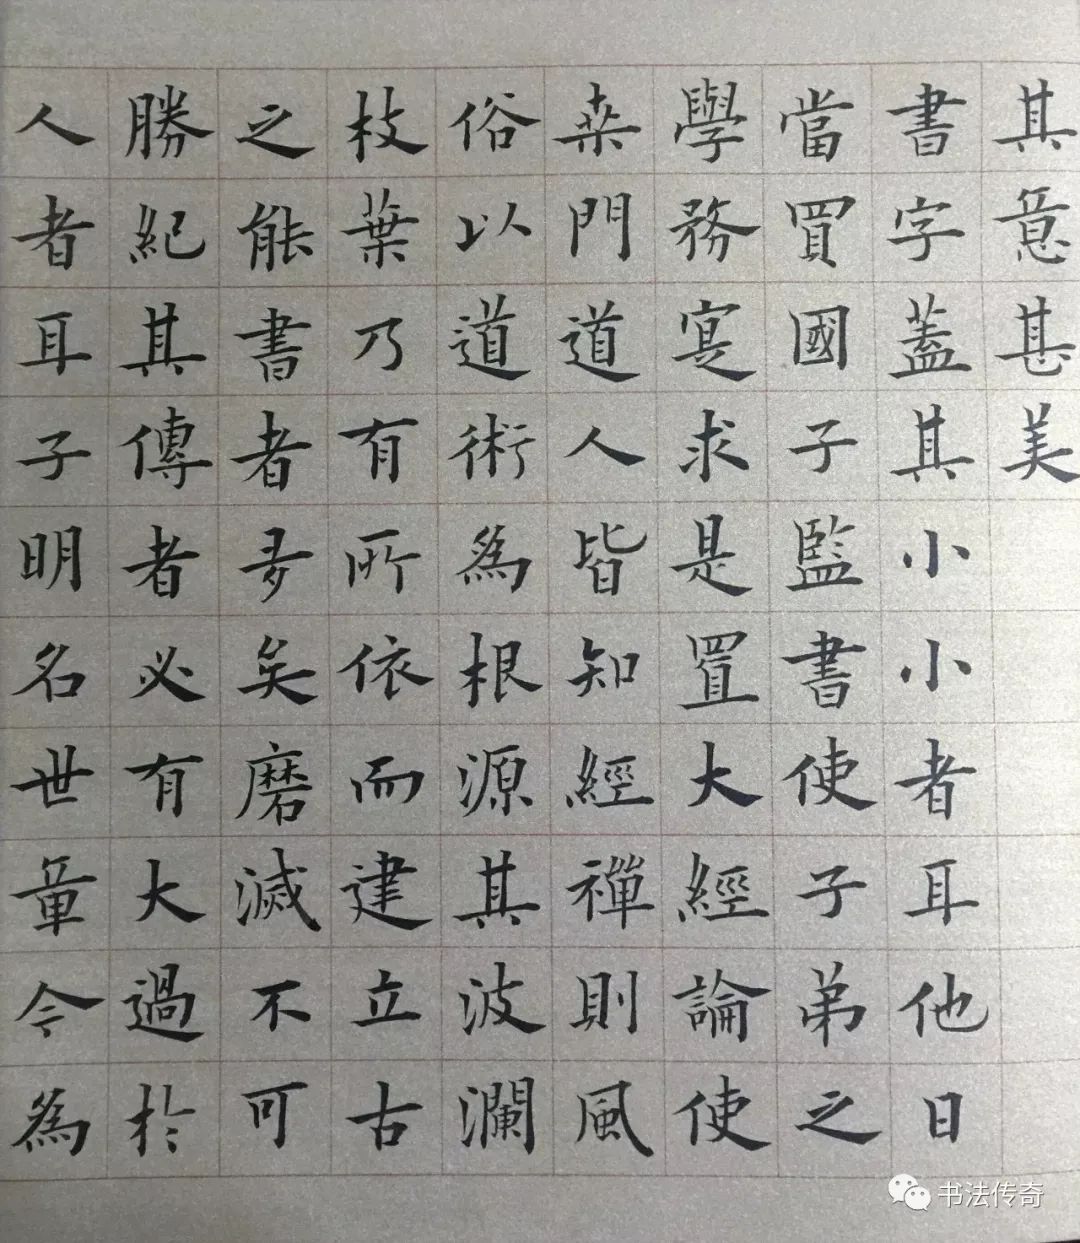 其意甚美
書字蓋其小小者耳他日
當買國子監書使子弟之
學務寔求是置大經論使
桒門道人皆知經禪則風
俗以道術為根源其波瀾
枝葉乃有所依而建立古
之能書者多矣磨滅不可
勝紀其傳者必有大過於
人者耳子明名世章今為
书法传奇